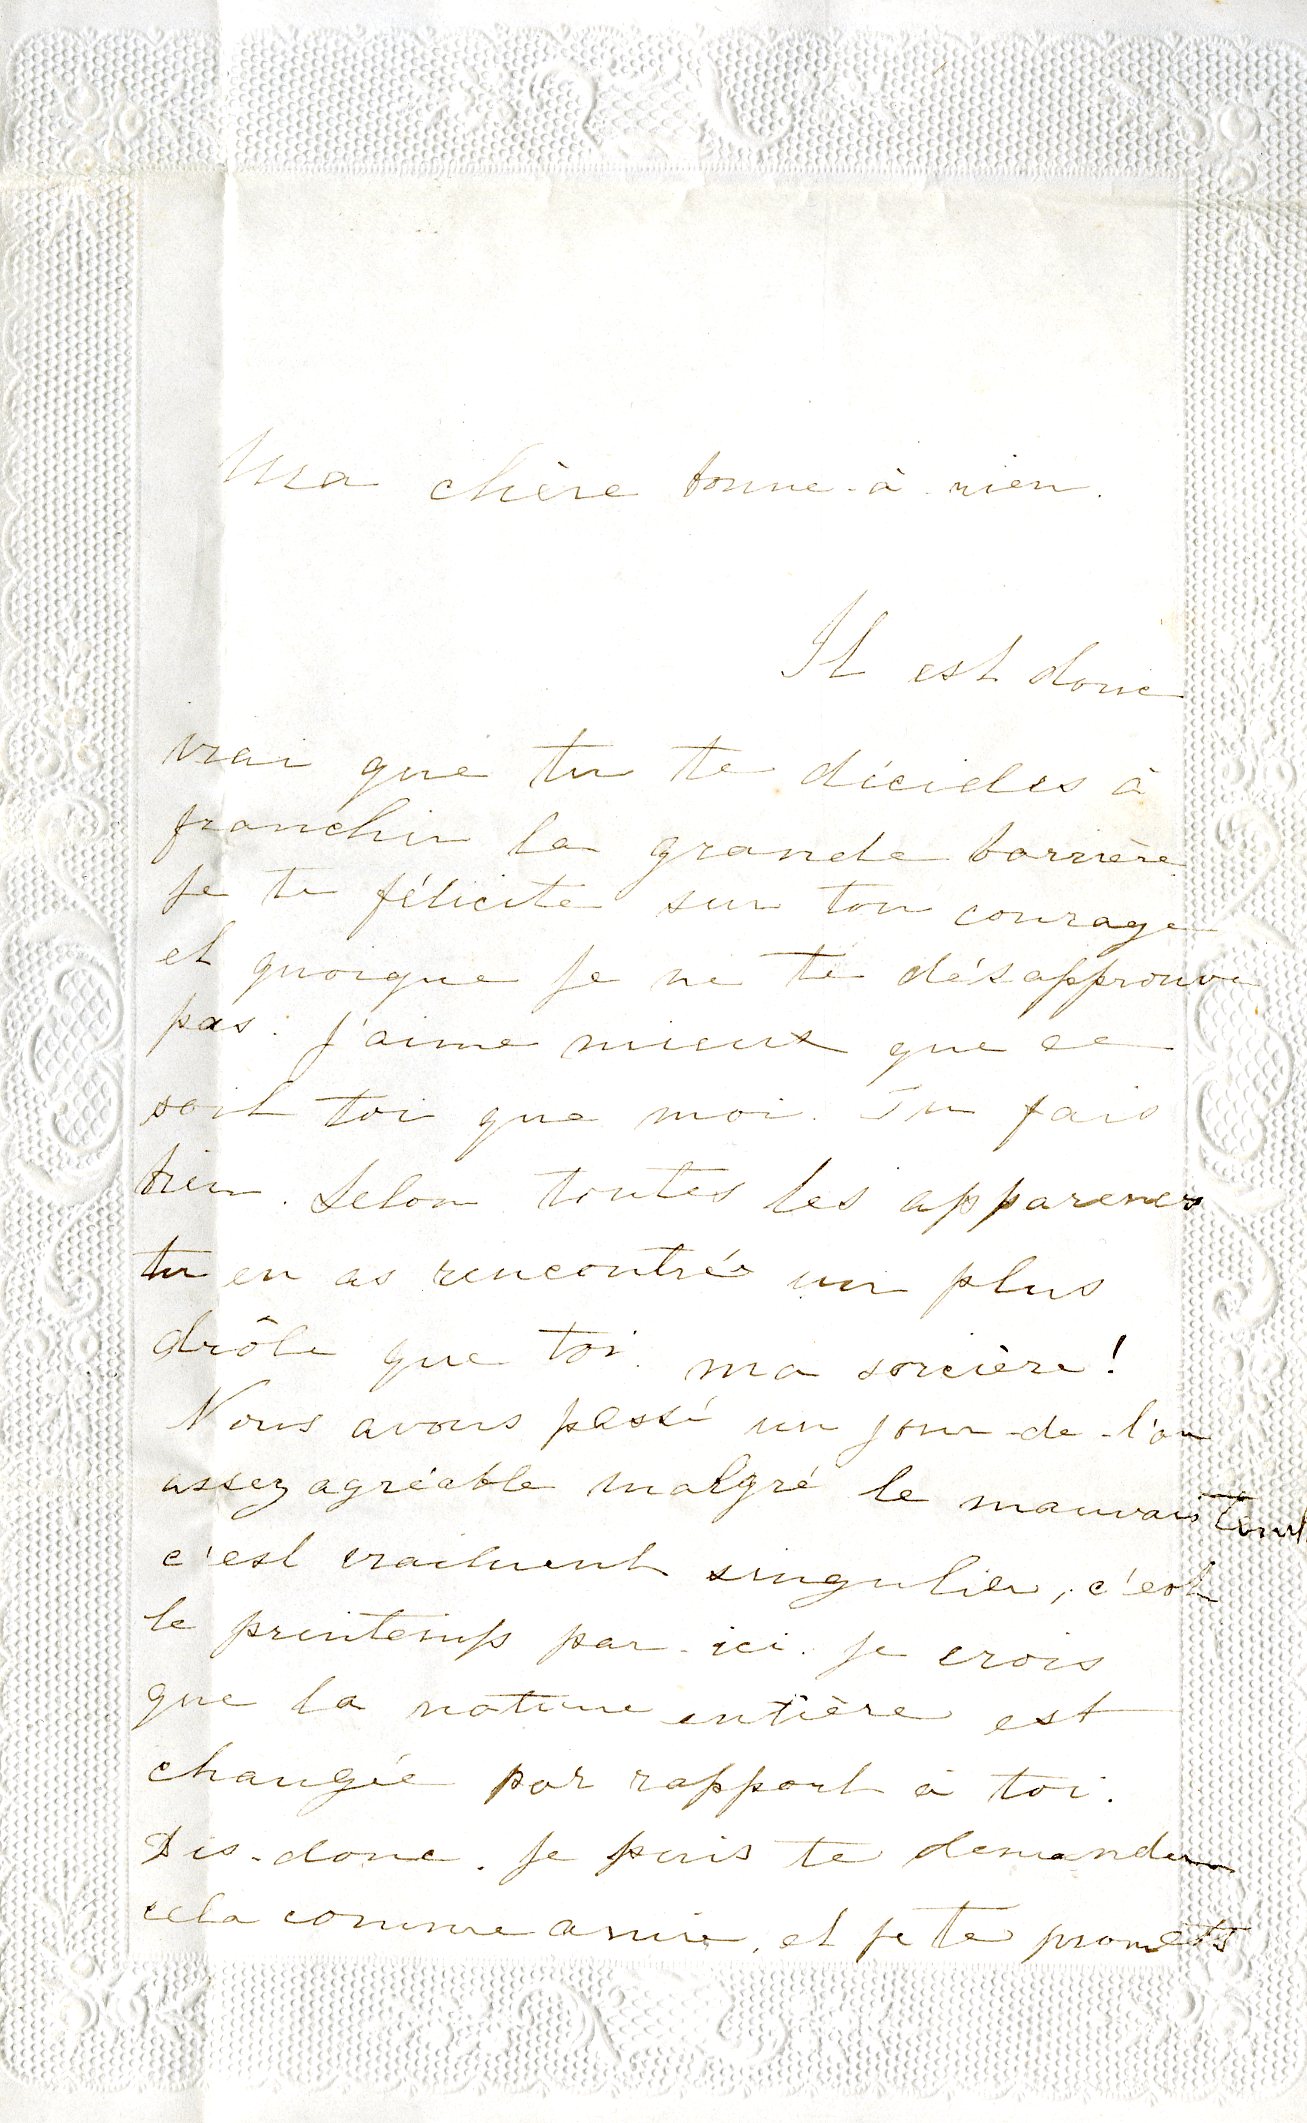 Ma chère bonne-à-rien.
Il est donc
vrai que tu te décides à
franchir la grande barrière
Je te félicite sur ton courage
et quoique je ne te désapprouve
pas. J'aime mieux que ce
soit toi que moi. Tu fais
bien. Selon toutes les apparences
tu en as rencontré un plus
drôle que toi. ma sorcière!
Nous avons passé un jour-de-l'an
assez agréable malgré le mauvais
c'est vraiment singulier, c'est
le printemps par-ici. je crois
que la nature entière est
changée par rapport à toi.
Dis-donc. Je puis te demander
cela comme amie, et je te promets